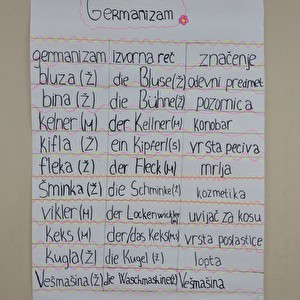 Germanizam
germanizam izvorna reč značenje
bluza (ž) die Bluse (ž) odevni predmet
bina (ž) die Bühne (ž) pozornica
kelner (м) der Kellner (м) konobar
kifla (ž) ein Kipferl (s) vrsta peciva
fleka (ž) der Fleck (м) mrlja
Šminka (ž) die Schminke (ž) kozmetika
vikler (м) der Lockenwickler (м) uvijač za kosu
Keks (м) der/das Keks (м/s) vrsta poslastice
Kugla (ž) die Kugel (ž) lopta
Vešmašina (ž) die Waschmaskine (ž) Vešmašina